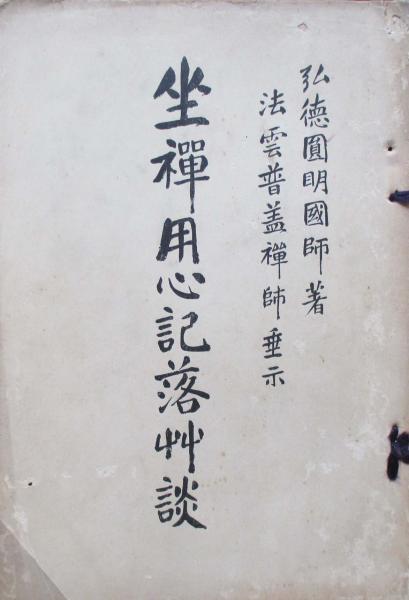 弘德圓明國師著
法雲普蓋禅師垂示
坐禪用心記落艸談